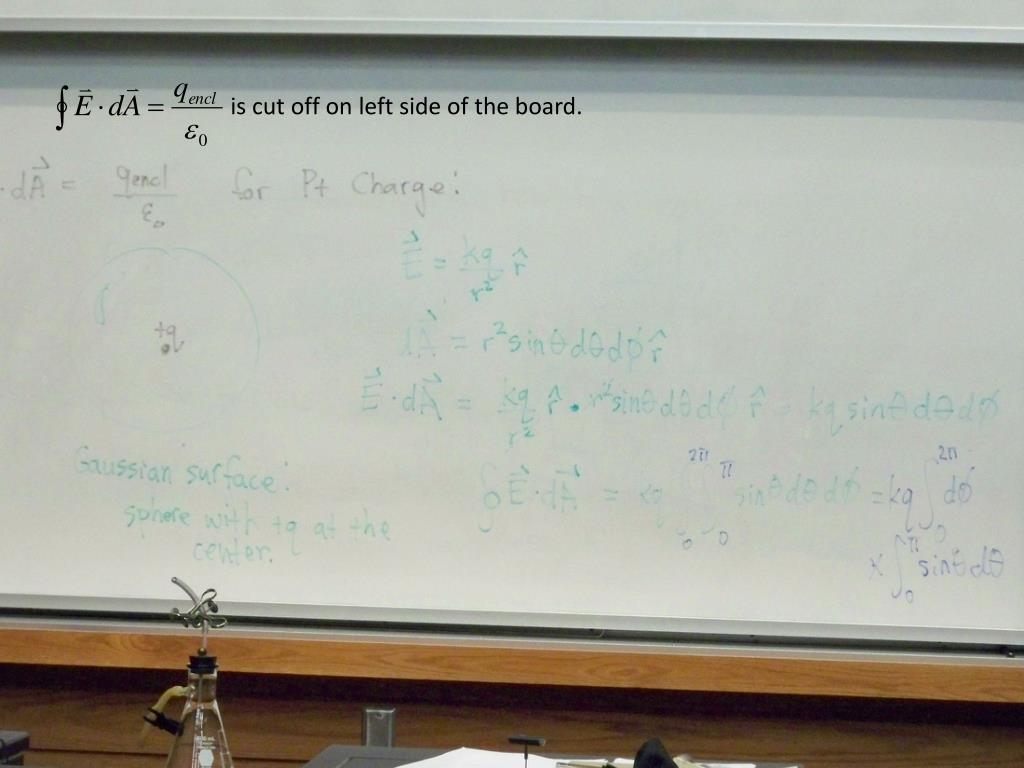 ∮ E⃗ · dA⃗ = q_encl / ε₀ is cut off on left side of the board.
· dA⃗ = q_encl / ε₀ for Pt Charge:
E⃗ = kq / r² r̂
+q
dA⃗ = r² sinθ dθ dϕ r̂
E⃗ · dA⃗ = kq / r² r̂ • r² sinθ dθ dϕ r̂ = kq sinθ dθ dϕ
Gaussian surface:
sphere with +q at the
center.
∮ E⃗ · dA⃗ = kq ∫₀^2π ∫₀^π sinθ dθ dϕ = kq ∫₀^2π dϕ
× ∫₀^π sinθ dθ